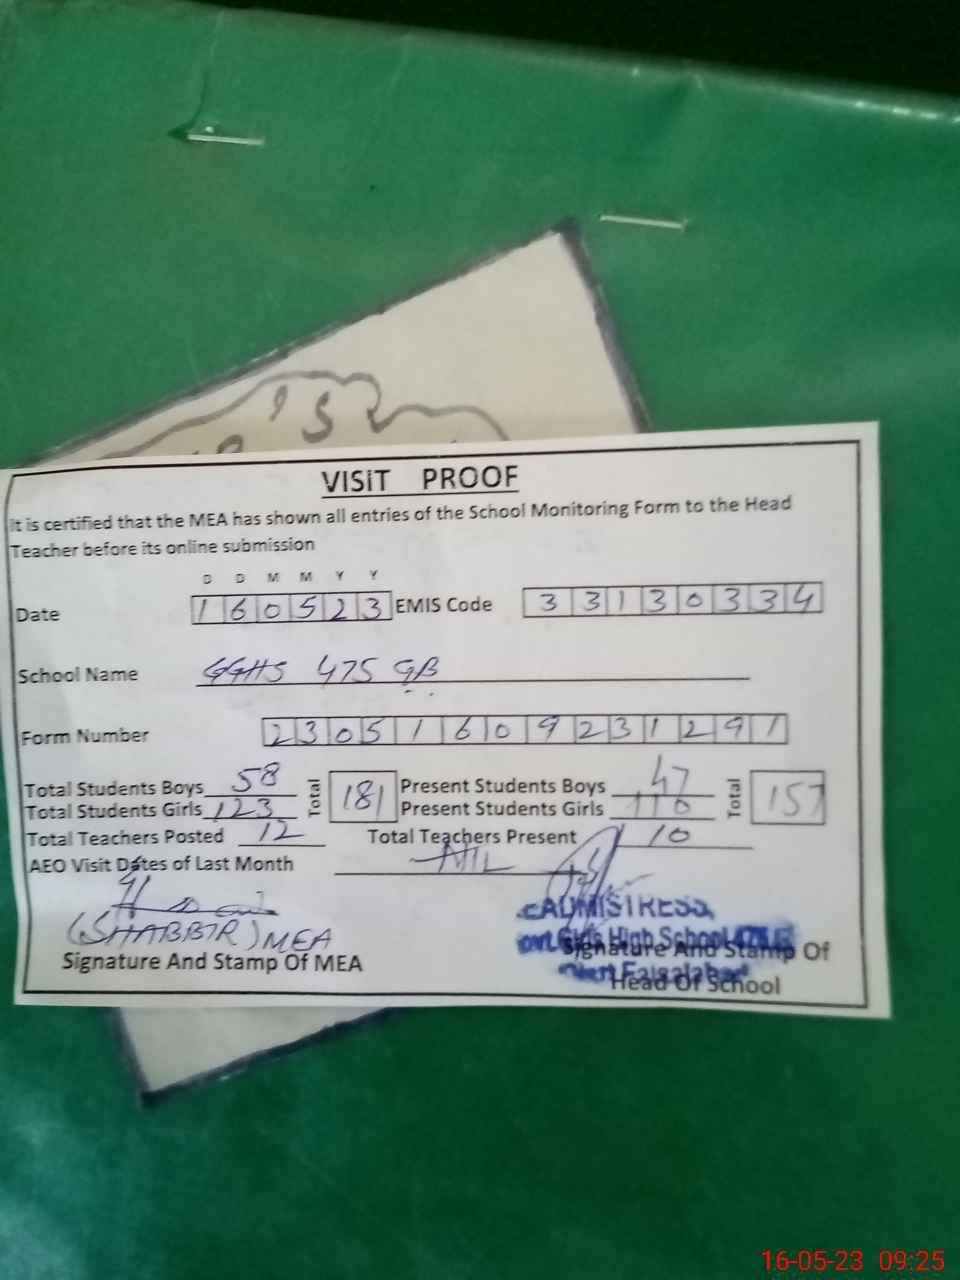 'S
VISIT PROOF
It is certified that the MEA has shown all entries of the School Monitoring Form to the Head
Teacher before its online submission
D D M M Y Y
Date 160523 EMIS Code 33130334
School Name GGHS 475 GB
Form Number 23051609231291
Total Students Boys 58 Total 181 Present Students Boys 47 Total 157
Total Students Girls 123 Present Students Girls 110
Total Teachers Posted 12 Total Teachers Present 10
AEO Visit Dates of Last Month NIL
(SHABBIR) MEA
EADMISTRESS,
Govt. Girls High School 475
Signature And Stamp Of MEA Signature And Stamp Of
Faisalabad
Head Of School
16-05-23 09:25